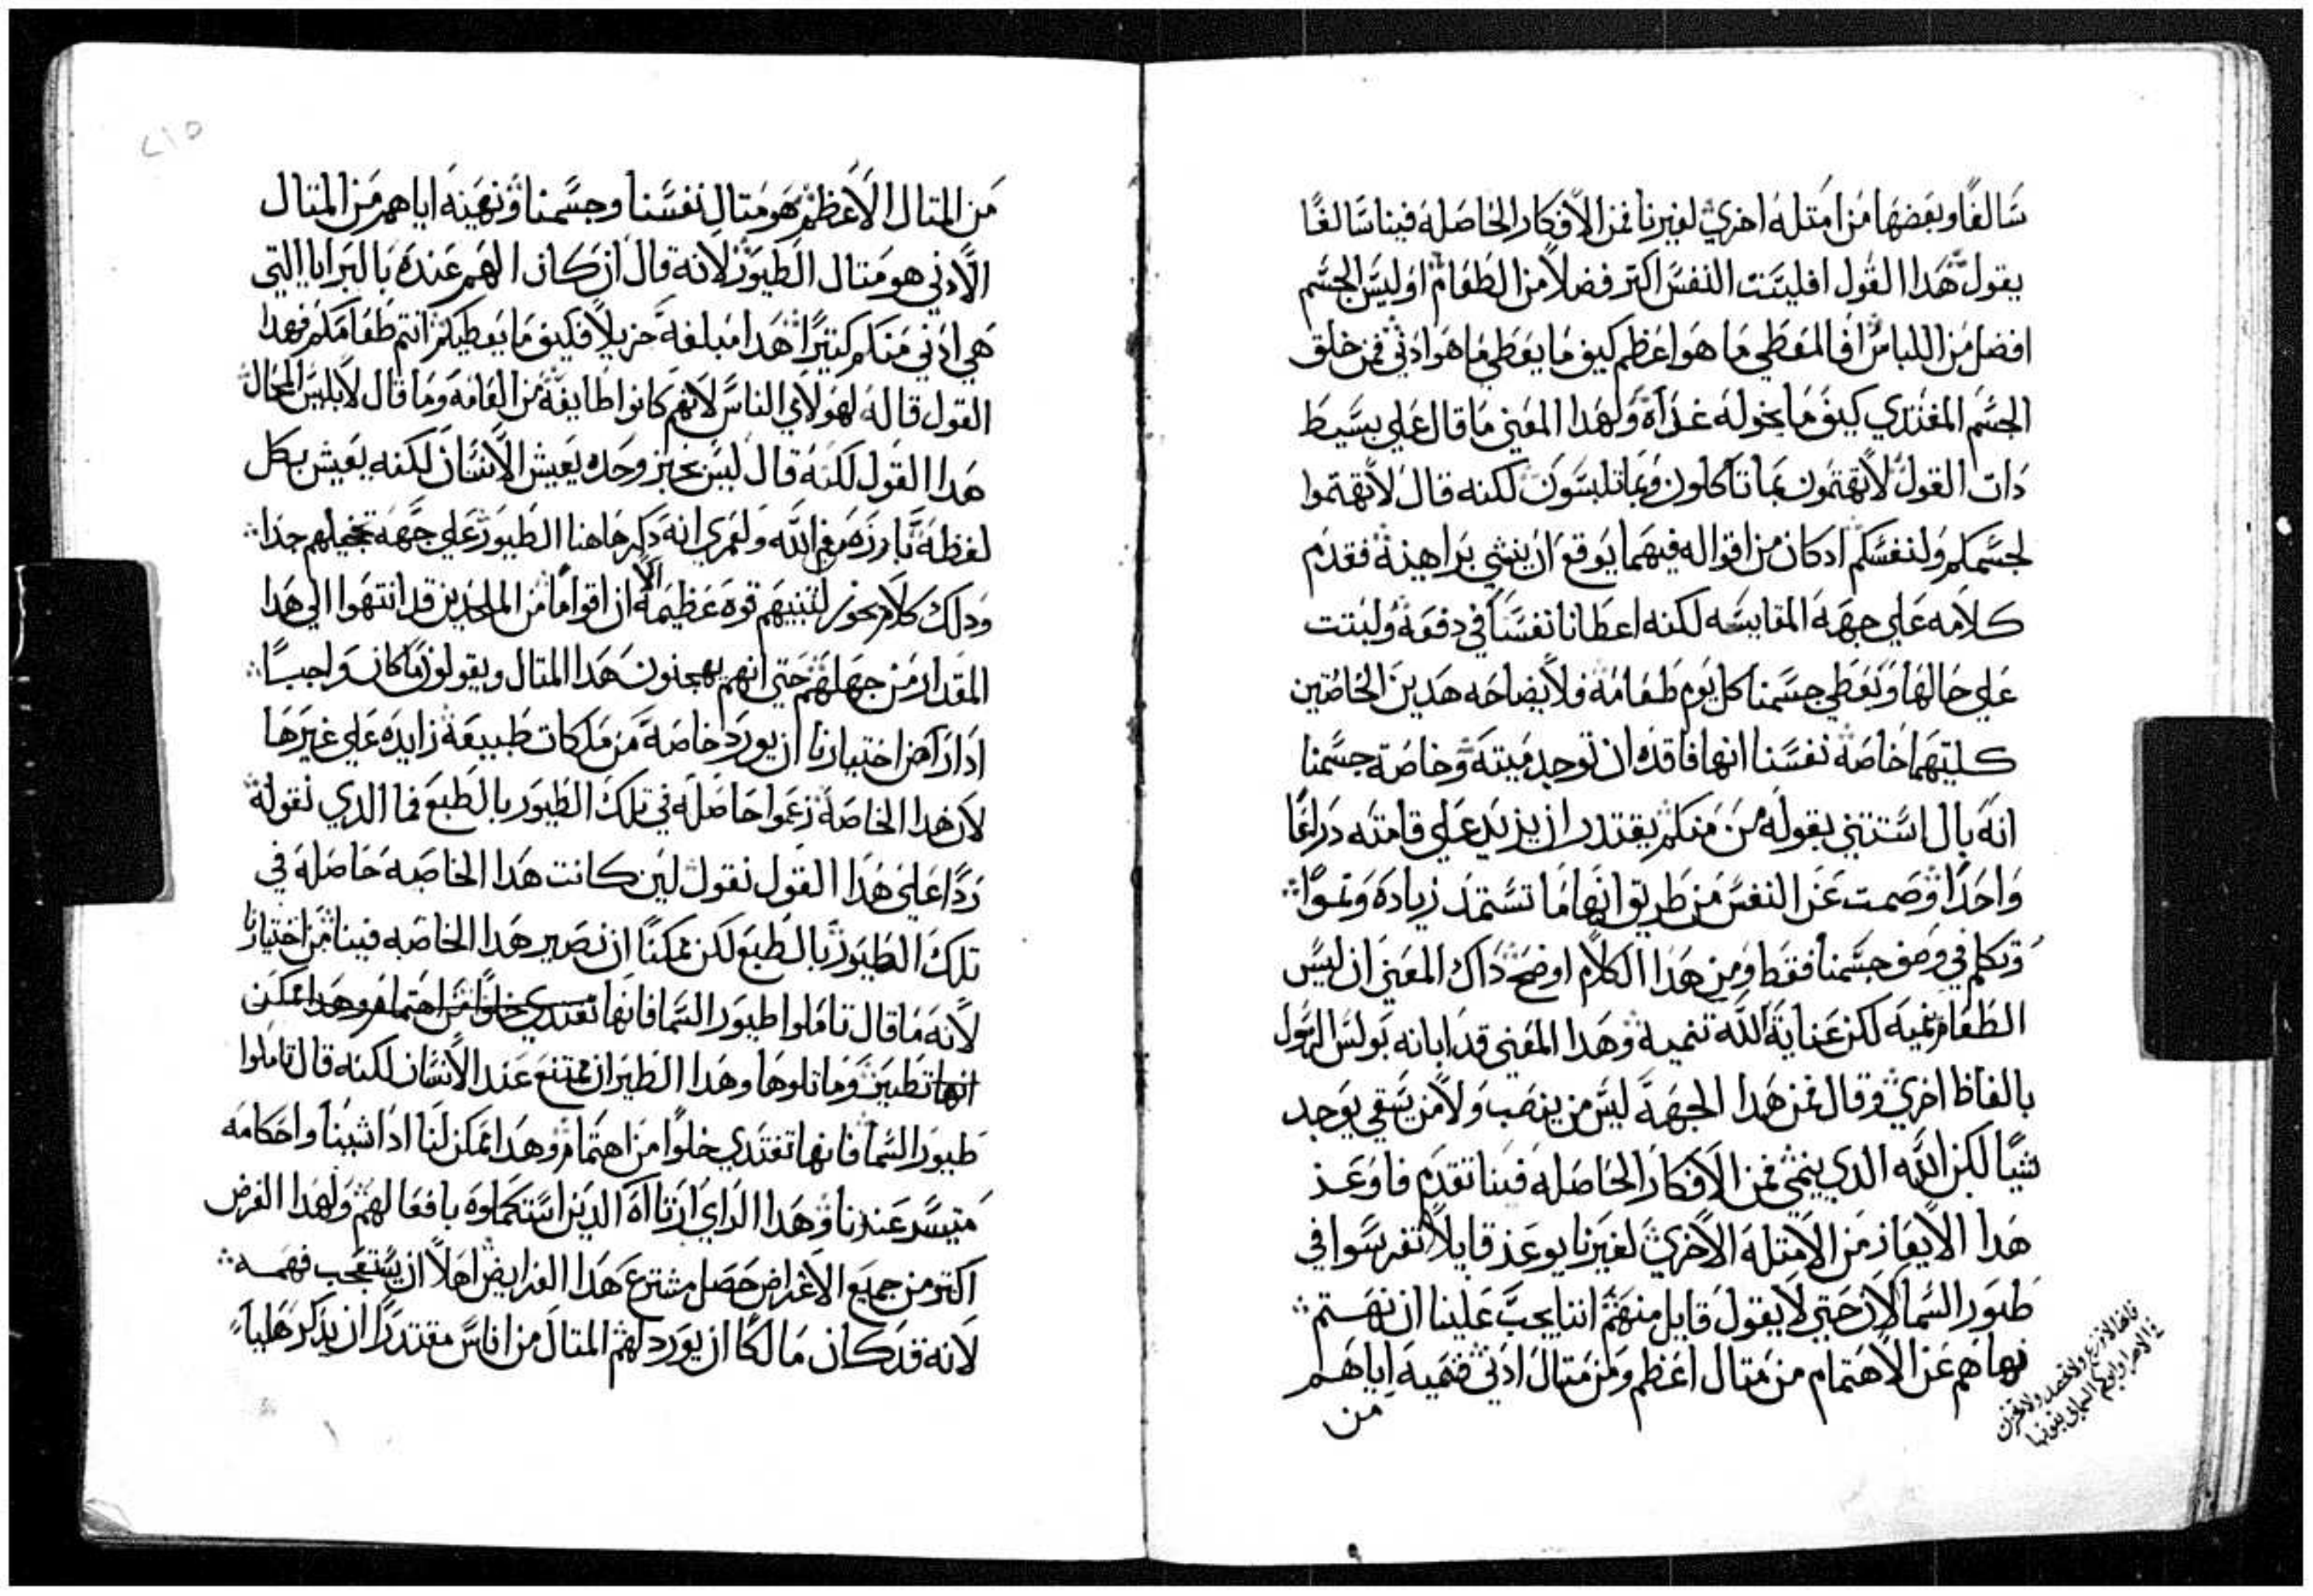 سالفًا وبعضها من امتله اخري لغيرنا فمن الافكار الحاصله فينا سالفًا
يقول هدا القول افليست النفس اكتر فضلاً من الطعام اوليس الجسم
افضل من اللباس افالمعطي ما هو اعظم كيف ما يعطي ما هو ادني فمن خلق
الجسم المغتدي كيف ما يخوله غداه ولهدا المعني ما قال علي بسيط
دات القول لا تهتمون بما تاكلون وبما تلبسون لكنه قال لا تهتموا
لجسمكم ولنفسكم ادكان من اقواله فيهما يوقع ان ينشي براهينه فقدم
كلامه علي جهه المقايسه لكنه اعطانا نفسنا في دفعه ولبتت
علي حالها ويعطي جسمنا كل يوم طعامه فلايضاحه هدين الخاصتين
كليتهما خاصه نفسنا انها فاقده ان توجد ميته وخاصه جسمنا
انه بال استتني بقوله من منكم يقتدر ان يزيد علي قامته دراعًا
واحدًا وصمت عن النفس من طريق انها ما تستمد زيادة ونموًا
وتكلم في وصف جسمنا فقط ومن هدا الكلام اوضح داك المعني ان ليس
الطعام ينميه لكن عناية الله تنميه وهدا المعني قد ابانه بولس الرسول
بالفاظ اخري وقال فمن هدا الجهة ليس من ينصب ولا من يسقي يوجد
شيًا لكن الله الدي ينمي فمن الافكار الحاصله فينا تقدم فاوعد
هدا الايعاز من الامتلة الاخري لغيرنا يوعز قايلاً تفرسوا في
طيور السما لان حتي لا يقول قايل منهم اننا يجب علينا ان نهتم
نهاهم عن الاهتمام من متال اعظم ومن متال ادني فنميه اياهم
من
فانها لا تزرع ولا تحصد ولا تخزن
في الاهرا وابوكم السماي يقوتها
من المتال الاعظم هو متال نفسنا وجسمنا ونهينه اياهم من المتال
الادني هو متال الطيور لانه قال ان كان الهم عنده بالبرايا التي
هي ادني منكم كتيرًا هدا مبلغه جزيلاً فكيف ما يعطيكم انتم طعامكم فهدا
القول قاله لهولاي الناس لانهم كانوا طايفة من العامه وما قال لابليس المحال
هدا القول لكنه قال ليس بخبز وحده يعيش الانسان لكنه يعيش بكل
لفظة تبارز من فم الله ولعمري انه دكر هاهنا الطيور علي جهة تخجيلهم جدا
ودلك كلام يحوز لتنبيهم قوه عظيمه الا ان اقوامًا من الملحدين قد انتهوا الي هدا
المقدار من جهلهم حتي انهم يهجنون هدا المتال ويقولون ما كان واجبًا
ادا راض اختيارنا ان يورد خاصة من ملكات طبيعة زايده علي غيرها
لان هدا الخاصة زعموا حاصله في تلك الطيور بالطبع فما الدي نقوله
ردًا علي هدا القول نقول لين كانت هدا الخاصه حاصله في
تلك الطيور بالطبع لكن ممكنًا ان نصير هدا الخاصه فينا من اختيارنا
لانه ما قال تاملوا طيور السما فانها تغتدي خلوًا من اهتمام وهدا ممكن
انها تطير وماتلوها وهدا الطيران ممتنع عند الانسان لكنه قال تاملوا
طيور السما فانها تغتدي خلوًا من اهتمام وهدا يمكن لنا ادا شينا واحكامه
متيسر عندنا وهدا الراي ارتااه الدين استكملوه بافعالهم ولهدا الغرض
اكتر من جميع الاغراض حصل مشترع هدا الفرايض اهلاً ان يستعجب فهمه
لانه قد كان مالكًا ان يورد لهم المتال من اناس مقتدرًا ان يدكر هلياَ